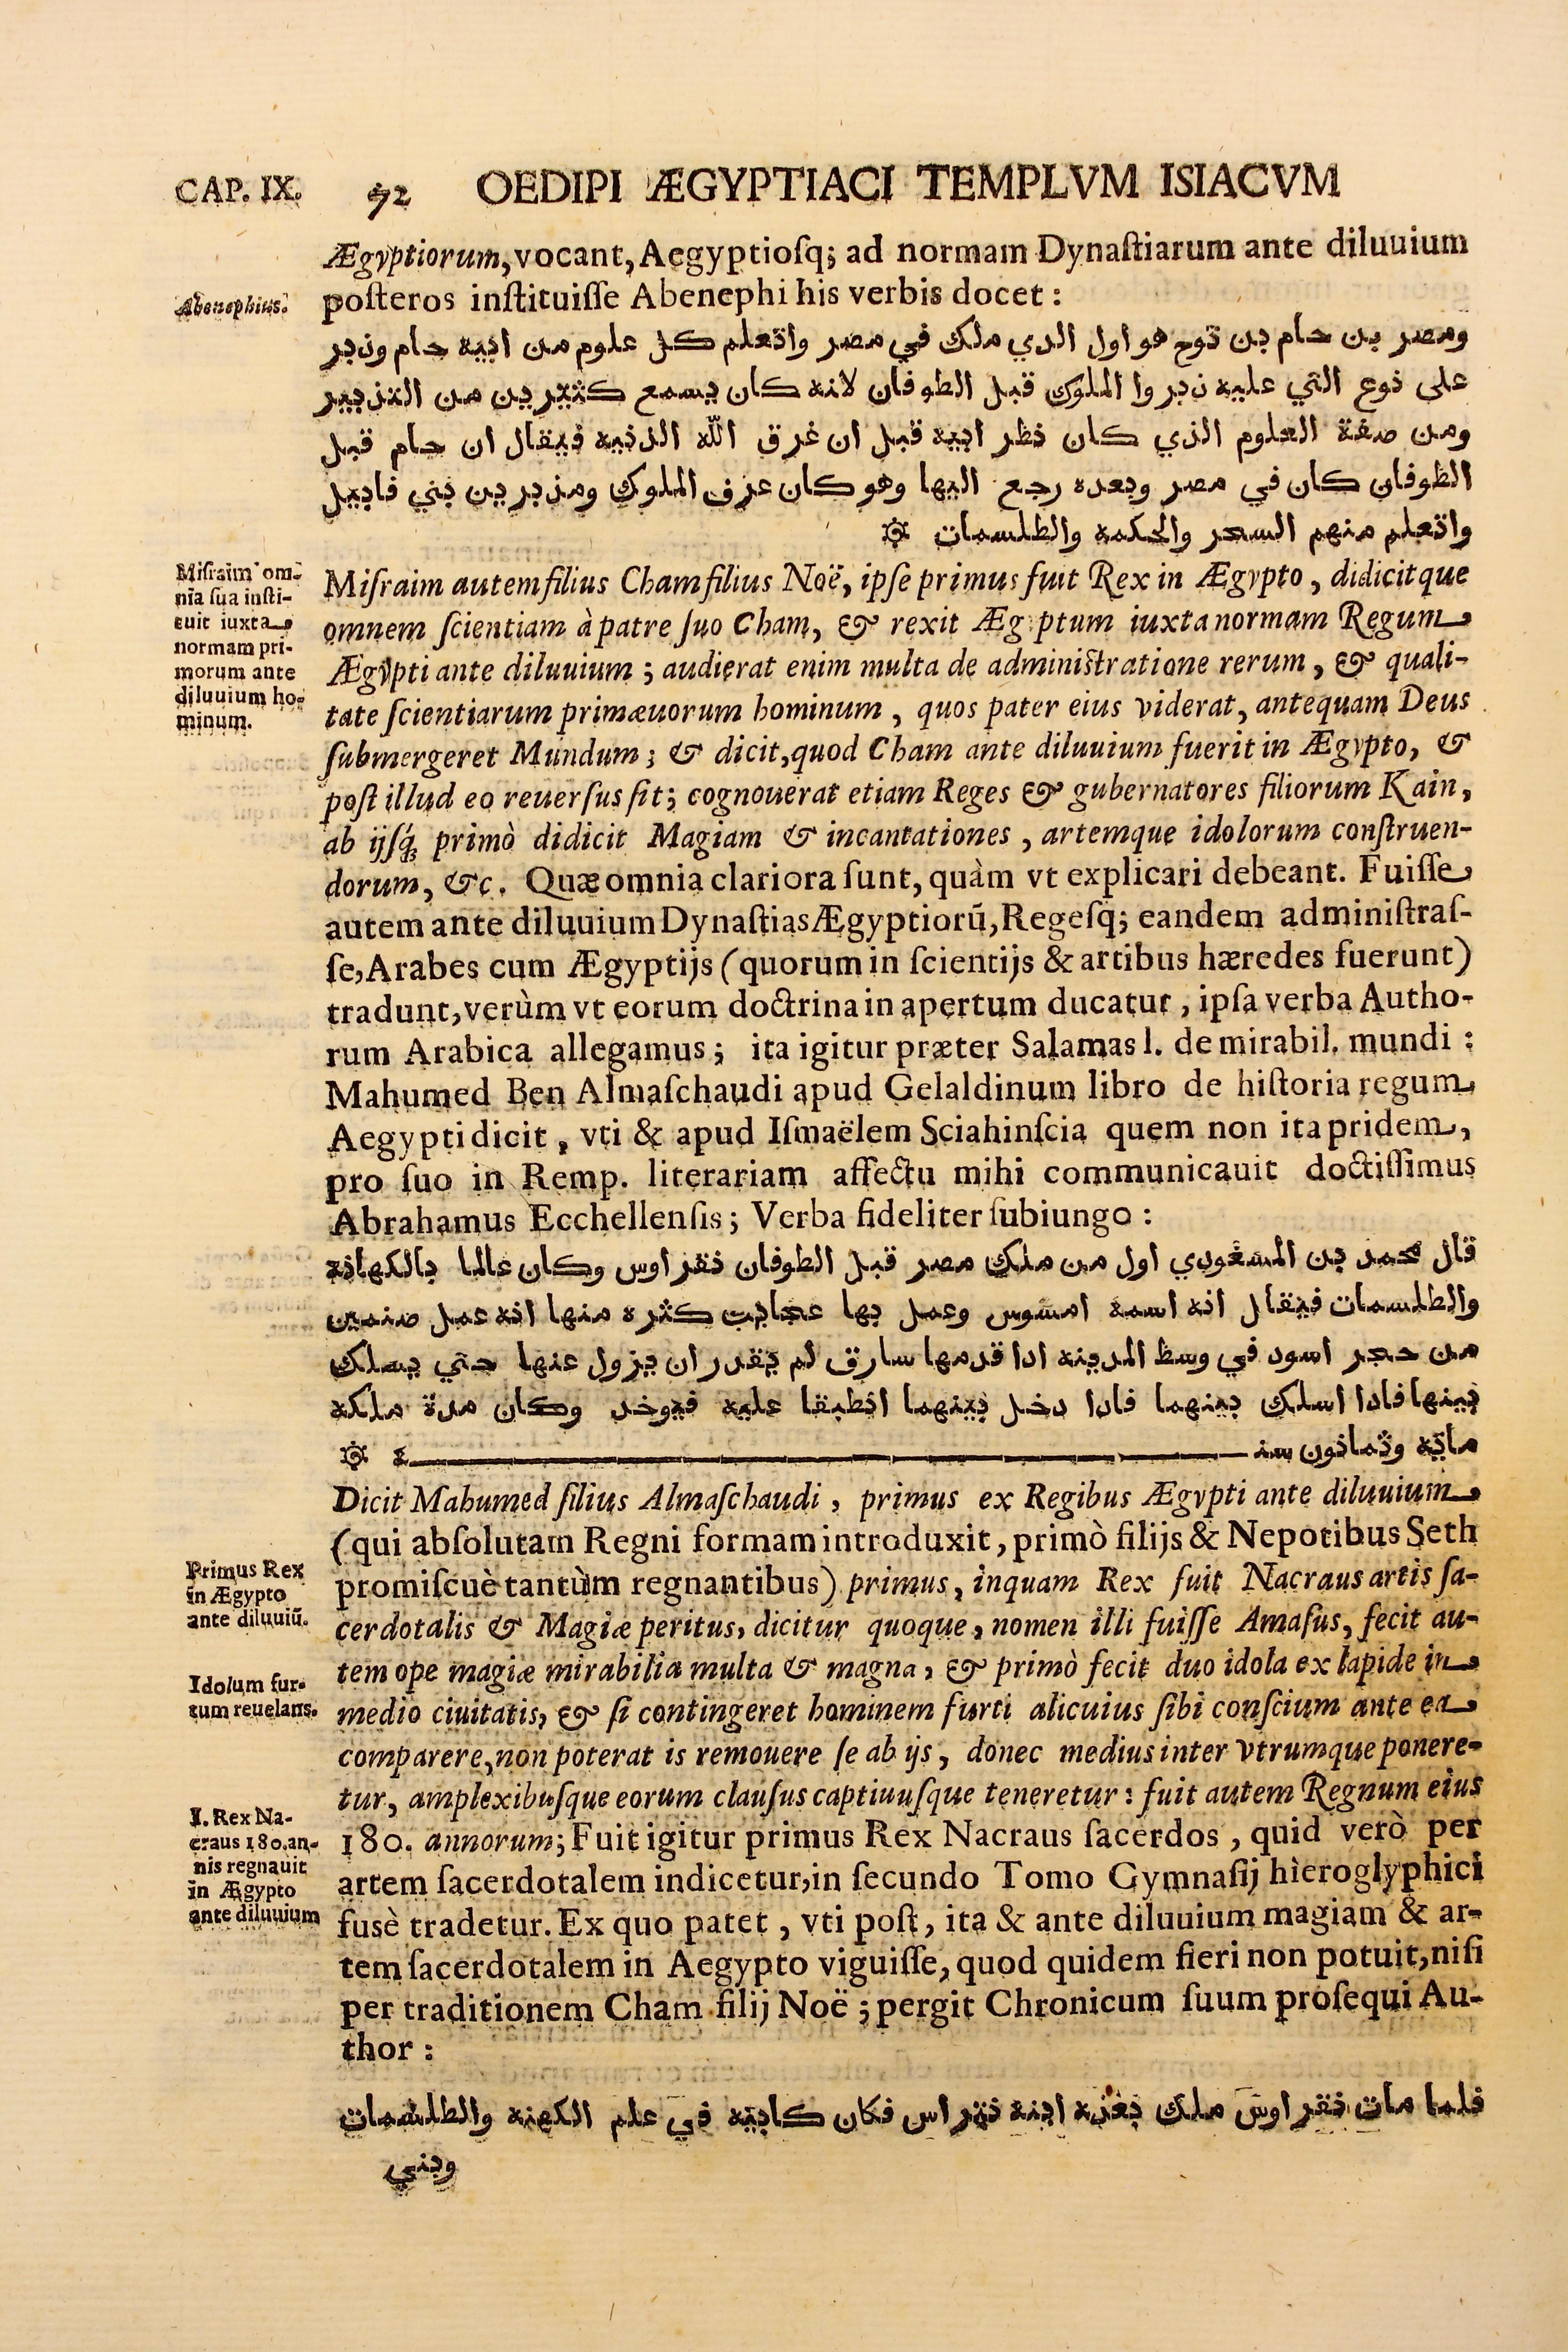 CAP. IX. 72 OEDIPI ÆGYPTIACI TEMPLVM ISIACVM
Ægyptiorum, vocant, Aegyptioſq; ad normam Dynaſtiarum ante diluuium
Abenephius.
poſteros inſtituiſſe Abenephi his verbis docet :
ومصر بن حام بن نوح هو اول الدي ملك في مصر واتعلم كل علوم من ابيه حام ودبر
على نوع التي عليه دبروا الملوك قبل الطوفان لانه كان يسمع كثيرين من التدبير
ومن صفة العلوم الذي كان نظر ابيه قبل ان غرق الله الدنيه فيقال ان حام قبل
الطوفان كان في مصر وبعده رجع اليها وهو كان عرف الملوك ومدبرين بني قابيل
واتعلم منهم السحر والحكمة والطلسمات ۞
Miſraim om-
nia ſua inſti-
tuit iuxta
normam pri-
morum ante
diluuium ho-
minum.
Miſraim autem filius Cham filius Noë, ipſe primus fuit Rex in Ægypto, didicitque
omnem ſcientiam à patre ſuo Cham, & rexit Æg ptum iuxta normam Regum
Ægypti ante diluuium ; audierat enim multa de adminiſtratione rerum, & quali-
tate ſcientiarum primæuorum hominum, quos pater eius viderat, antequam Deus
ſubmergeret Mundum ; & dicit, quod Cham ante diluuium fuerit in Ægypto, &
poſt illud eo reuerſus ſit ; cognouerat etiam Reges & gubernatores filiorum Kain,
ab ijſq́; primò didicit Magiam & incantationes, artemque idolorum conſtruen-
dorum, &c. Quæ omnia clariora ſunt, quàm vt explicari debeant. Fuiſſe
autem ante diluuium Dynaſtias Ægyptiorũ, Regeſq; eandem adminiſtraſ-
ſe, Arabes cum Ægyptijs (quorum in ſcientijs & artibus hæredes fuerunt)
tradunt, verùm vt eorum doctrina in apertum ducatur, ipſa verba Autho-
rum Arabica allegamus ; ita igitur præter Salamas l. de mirabil. mundi :
Mahumed Ben Almaſchaudi apud Gelaldinum libro de hiſtoria regum
Aegypti dicit, vti & apud Iſmaëlem Sciahinſcia quem non ita pridem,
pro ſuo in Remp. literariam affectu mihi communicauit doctiſſimus
Abrahamus Ecchellenſis ; Verba fideliter ſubiungo :
قال محمد بن المسعودي اول من ملك مصر قبل الطوفان نقراوس وكان عالما بالكهانة
والطلسمات فيقال انه اسمه امسوس وعمل بها عجايب كثره منها انه عمل صنمين
من حجر اسود في وسط المدينه ادا قدمها سارق لم يقدر ان يزول عنها حتي يسلك
بينها فادا اسلك بينهما فادا دخل بينهما انطبقا عليه فيوخد وكان مدة ملكه
مايه وثمانون سنة ۞
Dicit Mahumed filius Almaſchaudi, primus ex Regibus Ægypti ante diluuium
(qui abſolutam Regni formam introduxit, primò filijs & Nepotibus Seth
Primus Rex
in Ægypto
ante diluuiũ.
promiſcuè tantùm regnantibus) primus, inquam Rex fuit Nacraus artis ſa-
cerdotalis & Magiæ peritus, dicitur quoque, nomen illi fuiſſe Amaſus, fecit au-
Idolum fur-
tum reuelans.
tem ope magiæ mirabilia multa & magna, & primò fecit duo idola ex lapide in
medio ciuitatis, & ſi contingeret hominem furti alicuius ſibi conſcium ante ea
comparere, non poterat is remouere ſe ab ijs, donec medius inter vtrumque ponere-
tur, amplexibuſque eorum clauſus captiuuſque teneretur : fuit autem Regnum eius
I. Rex Na-
craus 180. an-
nis regnauit
in Ægypto
ante diluuium
180. annorum ; Fuit igitur primus Rex Nacraus ſacerdos, quid verò per
artem ſacerdotalem indicetur, in ſecundo Tomo Gymnaſij hieroglyphici
fusè tradetur. Ex quo patet, vti poſt, ita & ante diluuium magiam & ar-
tem ſacerdotalem in Aegypto viguiſſe, quod quidem fieri non potuit, niſi
per traditionem Cham filij Noë ; pergit Chronicum ſuum proſequi Au-
thor :
فلما مات نقراوس ملك بعده ابنه نقراس فكان كابيه في علم الكهنه والطلسمات
وبني